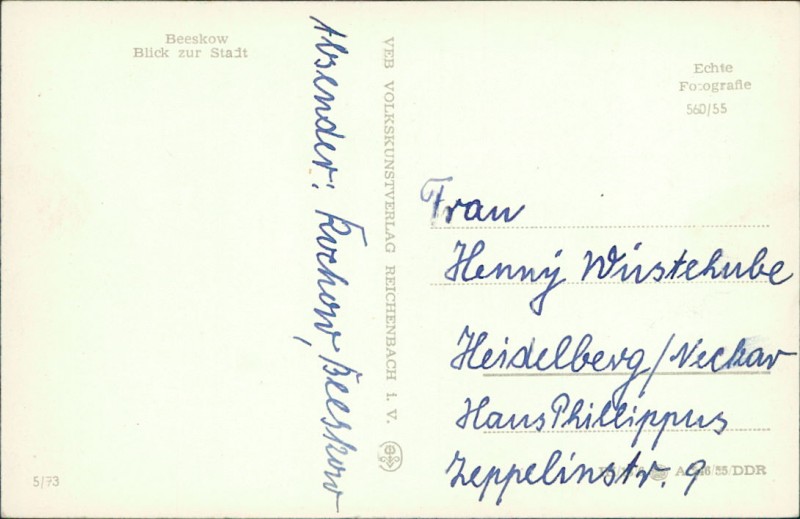 Beeskow
Blick zur Stadt
5/73
Absender: Kochow, Beeskow
VEB VOLKSKUNSTVERLAG REICHENBACH i. V.
Echte
Fotografie
560/55
Frau
Henny Wüstehube
Heidelberg/Neckar
Haus Phillippus
Zeppelinstr. 9
/55/DDR